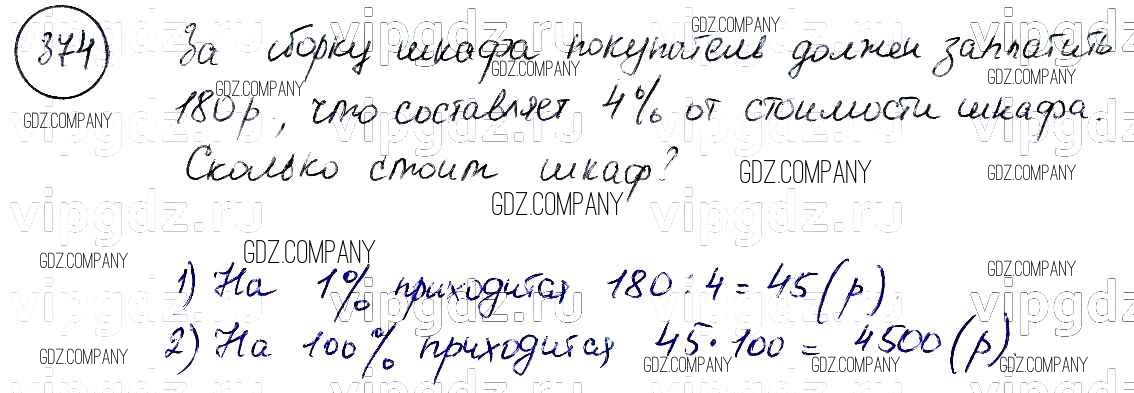 374 За сборку шкафа покупатель должен заплатить
180р, что составляет 4% от стоимости шкафа.
Сколько стоит шкаф?
1) На 1% приходится 180 : 4 = 45 (р)
2) На 100% приходится 45 · 100 = 4500 (р).
GDZ.COMPANY
vipgdz.ru